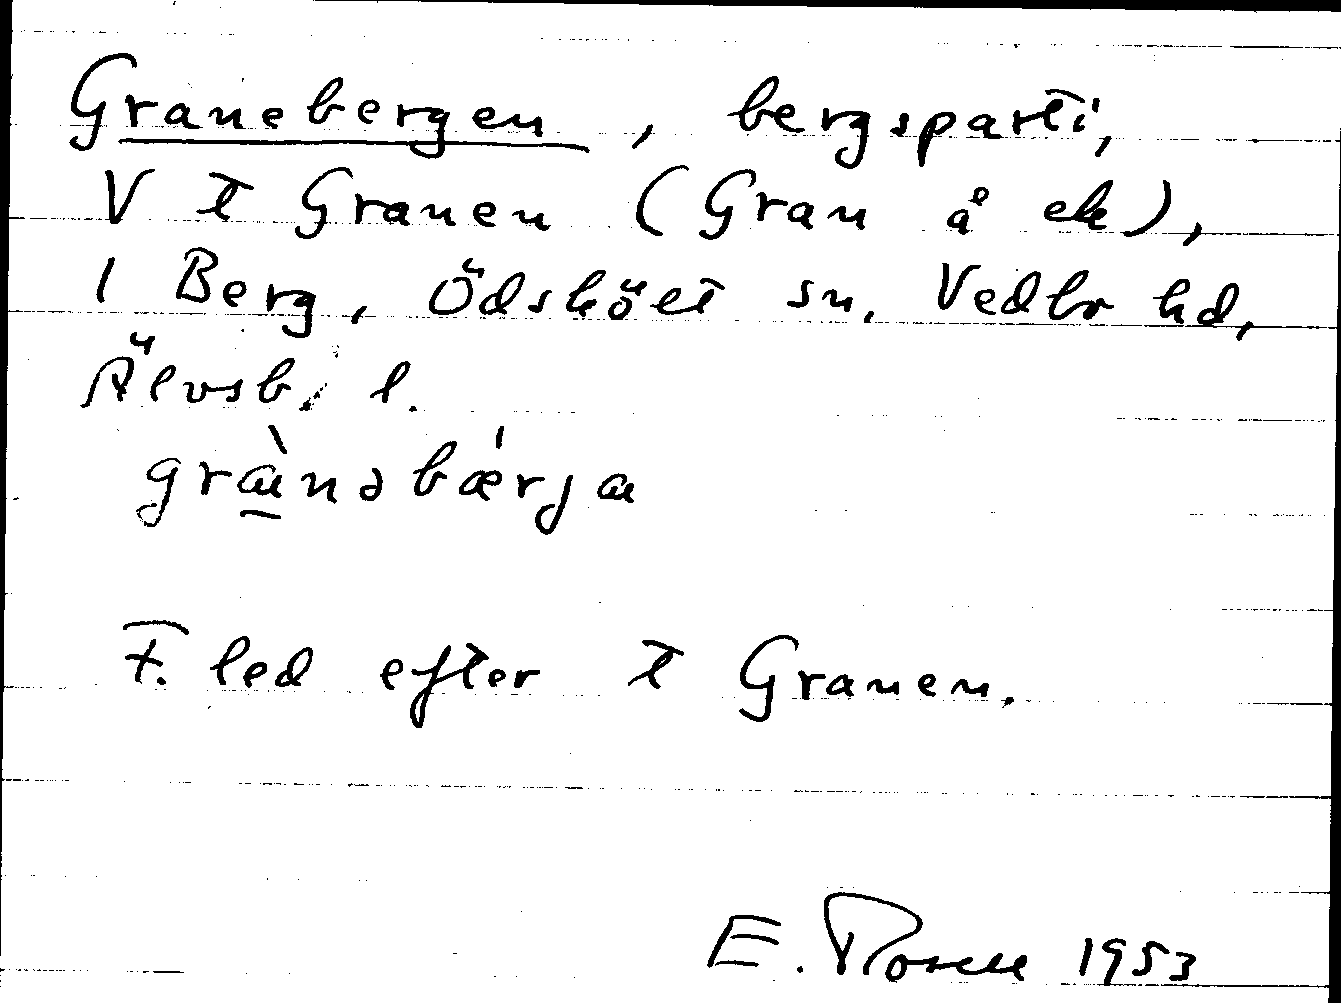 Granebergen, bergsparti,
V t Granen (Gran å ek),
1 Berg, Ödsköelt sn, Vedbo hd,
Älvsb. l.
grànəbǽrja
F. led efter t Granen.
E. Rosell 1953